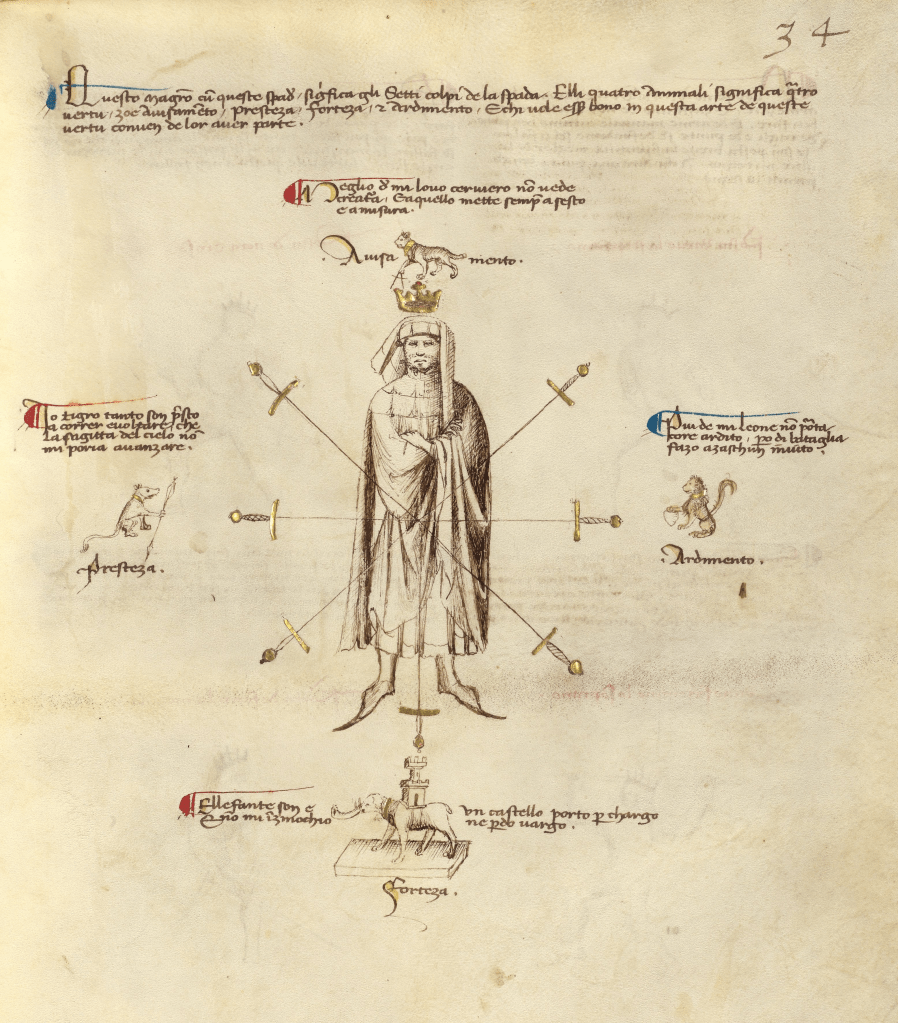 34
Questo Magrõ cũ queste spad' sig'fica gli Setti colpi de la spada. Elli quatro Animali significa q̃tro
vertù, zoe Avisamẽto, Presteza, Forteza, & Ardimento, E chi vole ess' bono in questa arte de queste
vertù conven de lor aver parte.
Meglio d' mi lovo cerviero nõ vede
creat'a, E aquello mette semp' a sesto
e a misura.
Avisa mento.
Io tigro tanto son p'sto
a correr e voltare, che
la sagitta del cielo nõ
mi poria avanzare.
Più de mi leone nõ p'ota
core ardito, p'o di bataglia
fazo azaschun invito.
Presteza.
Ardimento.
Ellefante son e un castello porto p' chargo
E nõ mi inzinochio ne p'do vargo.
Forteza.